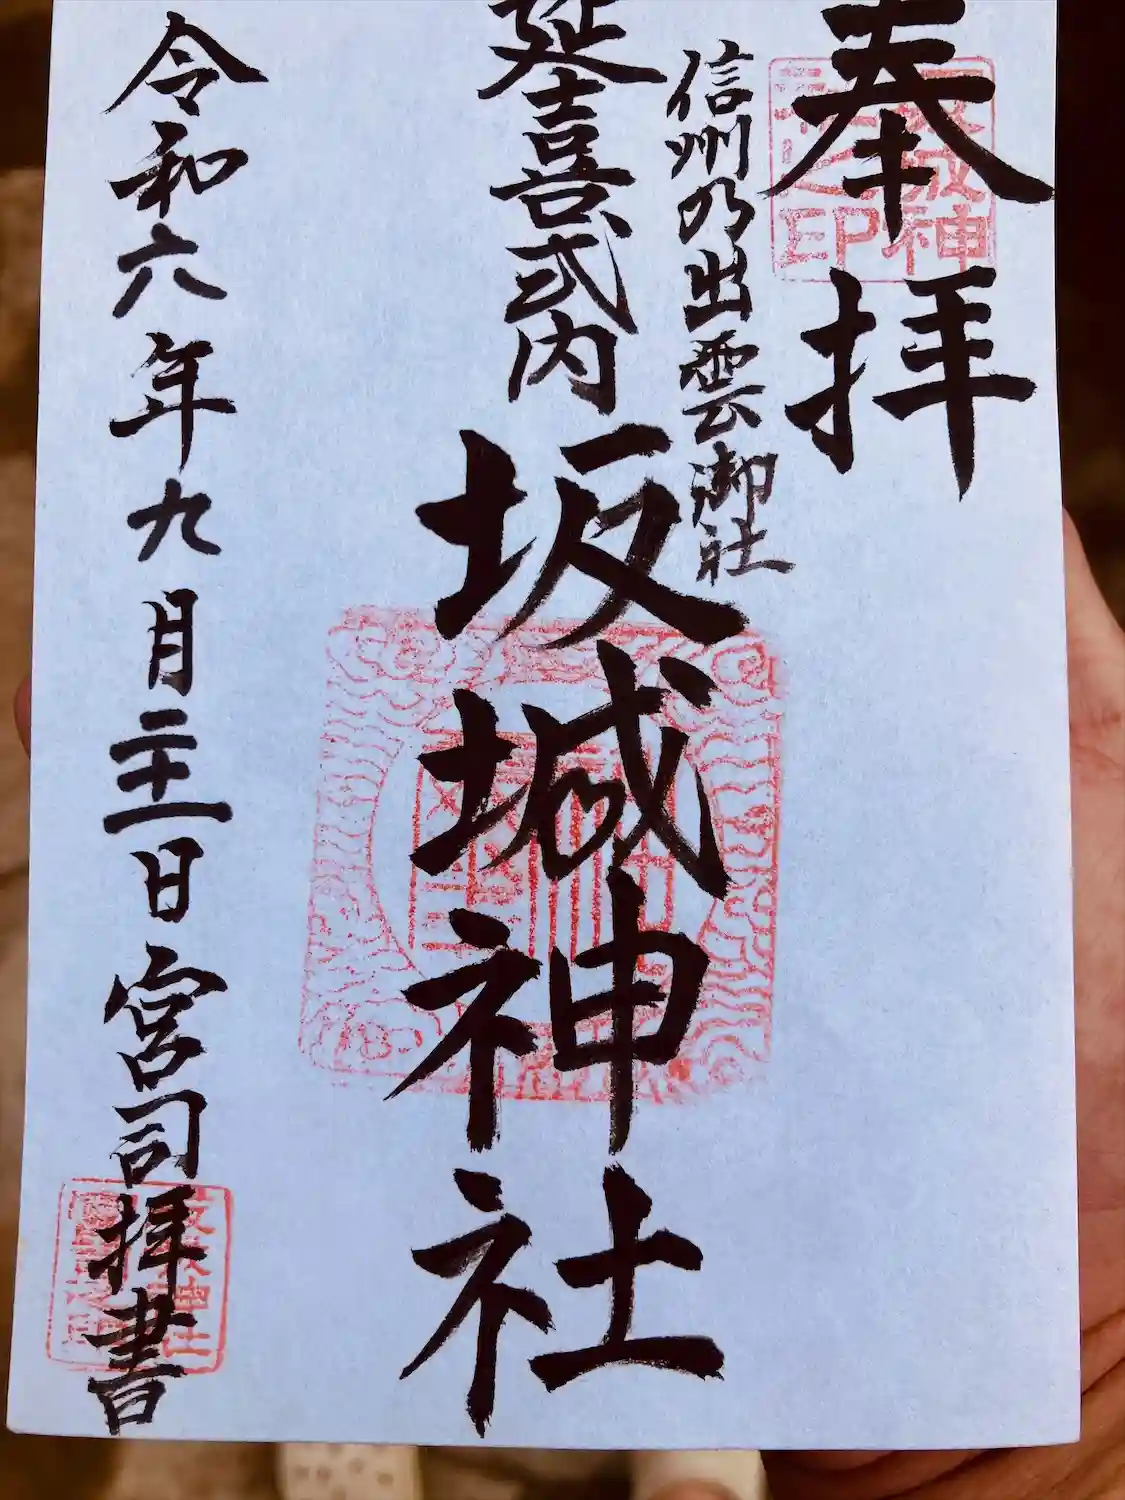 奉拝
信州乃出雲御社
延喜式内
坂城神社
令和六年九月二十一日宮司拝書
坂城神
社之印